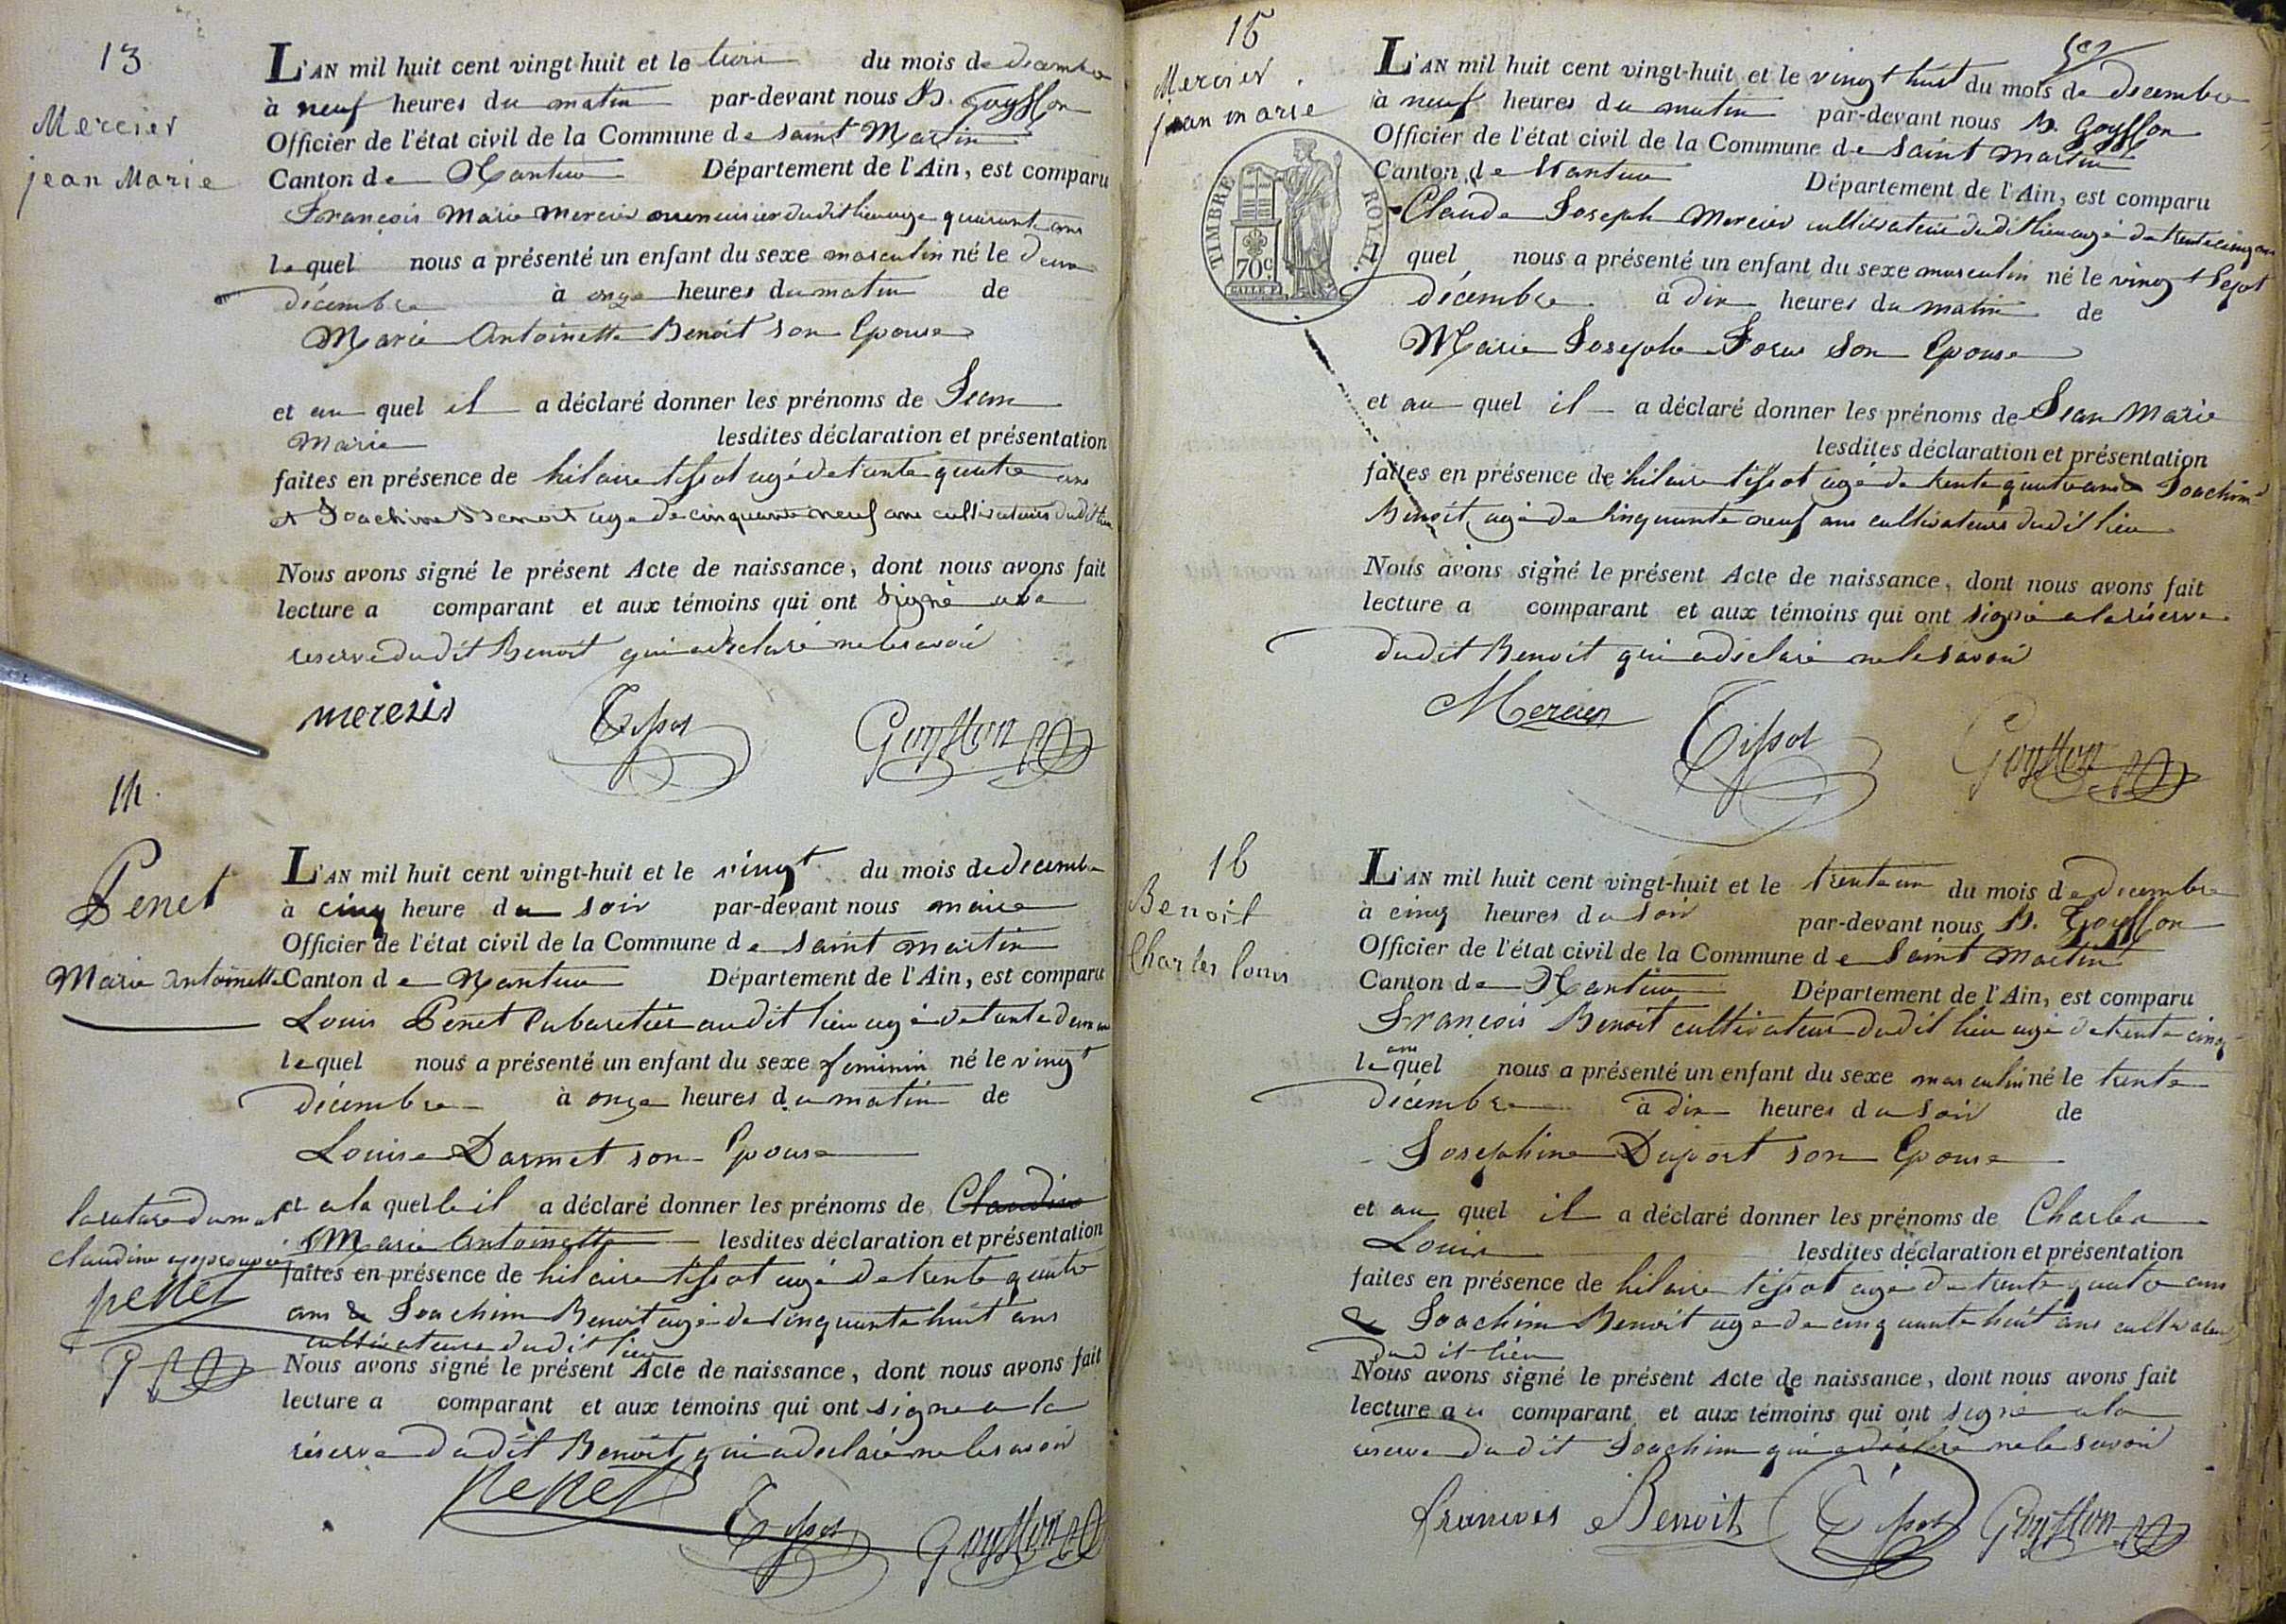 13
Mercier
jean Marie
L'AN mil huit cent vingt-huit et le trois du mois de decembre
à neuf heures du matin par-devant nous B. Goyffon
Officier de l'état civil de la Commune de saint Martin
Canton de Nantua Département de l'Ain, est comparu
François Marie Mercier menuisier dudit lieu age quarante ans
lequel nous a présenté un enfant du sexe masculin né le deux
décembre à onze heures du matin de
Marie Antoinette Benoit son Epouse
et au quel il a déclaré donner les prénoms de Jean
Marie lesdites déclaration et présentation
faites en présence de hilaire tissot agé de trente quatre ans
et Joachim Benoit age de cinquante neuf ans cultivateurs dudit lieu
Nous avons signé le présent Acte de naissance, dont nous avons fait
lecture a comparant et aux témoins qui ont signé a la
reserve dudit Benoit qui a declaré ne le savoir
Tissot Goyffon
14.
Penet
Marie Antoinette
L'AN mil huit cent vingt-huit et le vingt du mois de decembre
à cinq heure du soir par-devant nous maire
Officier de l'état civil de la Commune de saint martin
Canton de Nantua Département de l'Ain, est comparu
Louis Penet Cabaretier audit lieu agé de trente deux ans
lequel nous a présenté un enfant du sexe feminin né le vingt
décembre à onze heures du matin de
Louise Darmet son Epouse
et a la quelle il a déclaré donner les prénoms de Claudine
Marie Antoinette lesdites déclaration et présentation
la rature du mot
claudine approuvée
penet
faites en présence de hilaire tissot agé de trente quatre
ans & Joachim Benoit agé de cinquante huit ans
cultivateurs dudit lieu
Nous avons signé le présent Acte de naissance, dont nous avons fait
lecture a comparant et aux témoins qui ont signe a la
réserve dudit Benoit qui a declaré ne le savoir
penet Tissot Goyffon
15
Mercier
jean marie
TIMBRE ROYAL.
70c
L'AN mil huit cent vingt-huit et le vingt huit du mois de decembre
à neuf heures du matin par-devant nous B. Goyffon
Officier de l'état civil de la Commune de saint martin
Canton de Nantua Département de l'Ain, est comparu
Claude Joseph Mercier cultivateur dudit lieu agé de trente cinq ans
lquel nous a présenté un enfant du sexe masculin né le vingt Sept
décembre à dix heures du matin de
Marie Josephe son Epouse
et au quel il a déclaré donner les prénoms de Jean Marie
lesdites déclaration et présentation
faites en présence de hilaire tissot agé de trente quatre ans & Joachim
Benoit agé de cinquante neuf ans cultivateurs dudit lieu
Nous avons signé le présent Acte de naissance, dont nous avons fait
lecture a comparant et aux témoins qui ont signé a la réserve
dudit Benoit qui a déclaré ne le savoir
Mercier Tissot Goyffon
16
Benoit
Charles louis
L'AN mil huit cent vingt-huit et le trente un du mois de decembre
à cinq heures du soir par-devant nous B. Goyffon
Officier de l'état civil de la Commune de saint martin
Canton de Nantua Département de l'Ain, est comparu
François Benoit cultivateur dudit lieu agé de trente cinq
ans
lequel nous a présenté un enfant du sexe masculin né le trente
décembre à dix heures du soir de
Josephine Duport son Epouse
et au quel il a déclaré donner les prénoms de Charles
Louis lesdites déclaration et présentation
faites en présence de hilaire tissot age de trente quatre ans
& Joachim Benoit age de cinquante huit ans cultivateurs
dudit lieu
Nous avons signé le présent Acte de naissance, dont nous avons fait
lecture au comparant et aux témoins qui ont signé a la
reserve dudit Joachim qui a déclaré ne le savoir
francois Benoit Tissot Goyffon